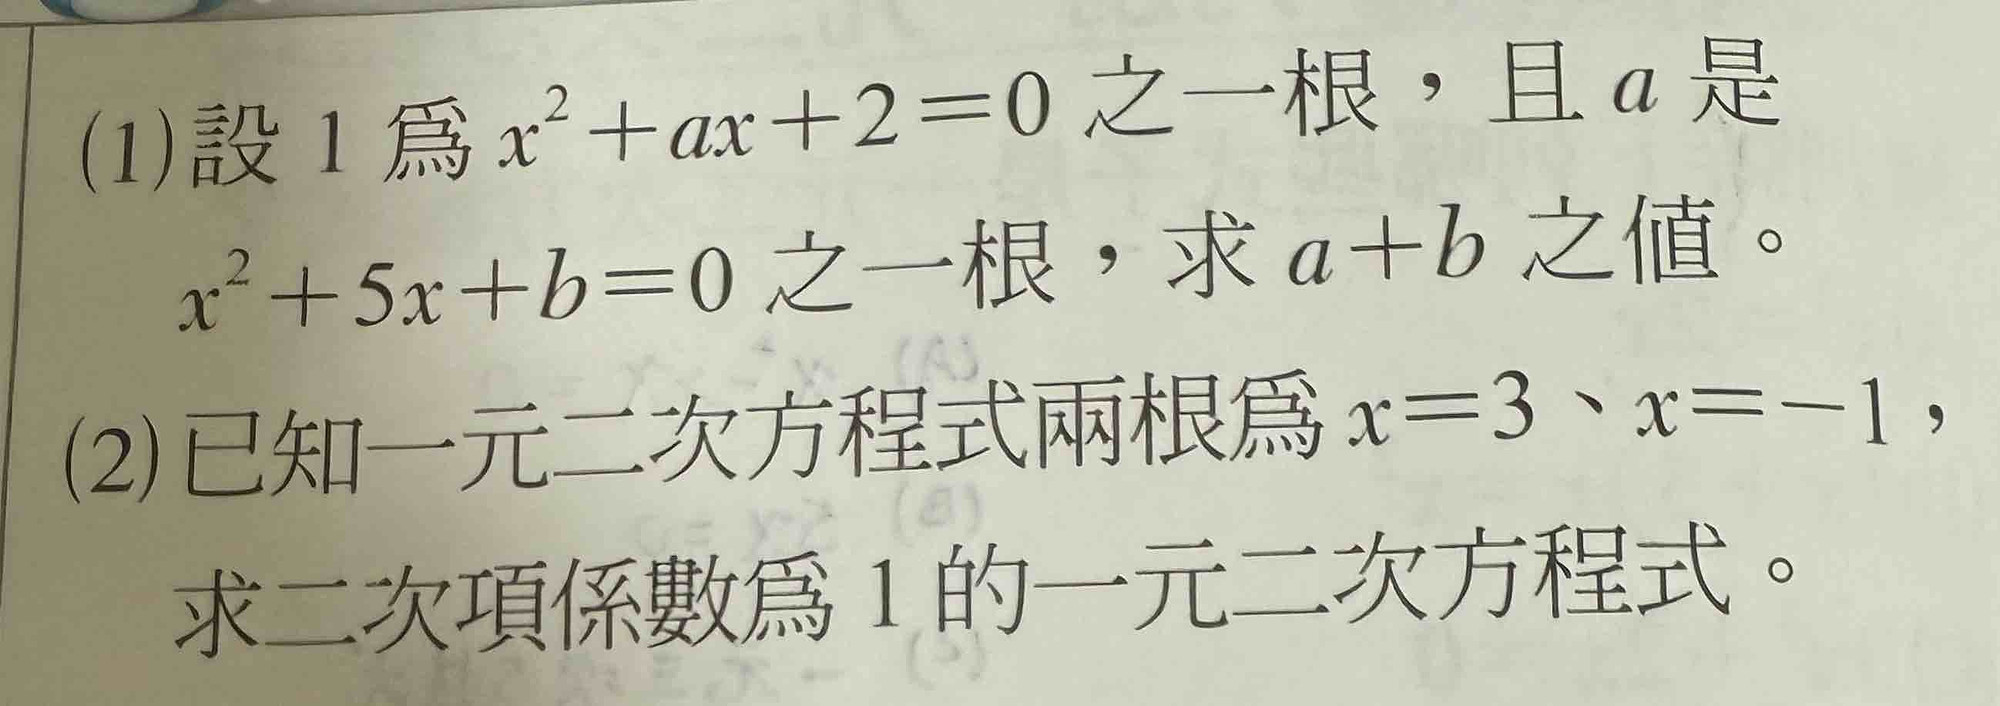 (1)設 1 爲 x²+ax+2=0 之一根，且 a 是
x²+5x+b=0 之一根，求 a+b 之值。
(2)已知一元二次方程式兩根爲 x=3、x=-1，
求二次項係數爲 1 的一元二次方程式。